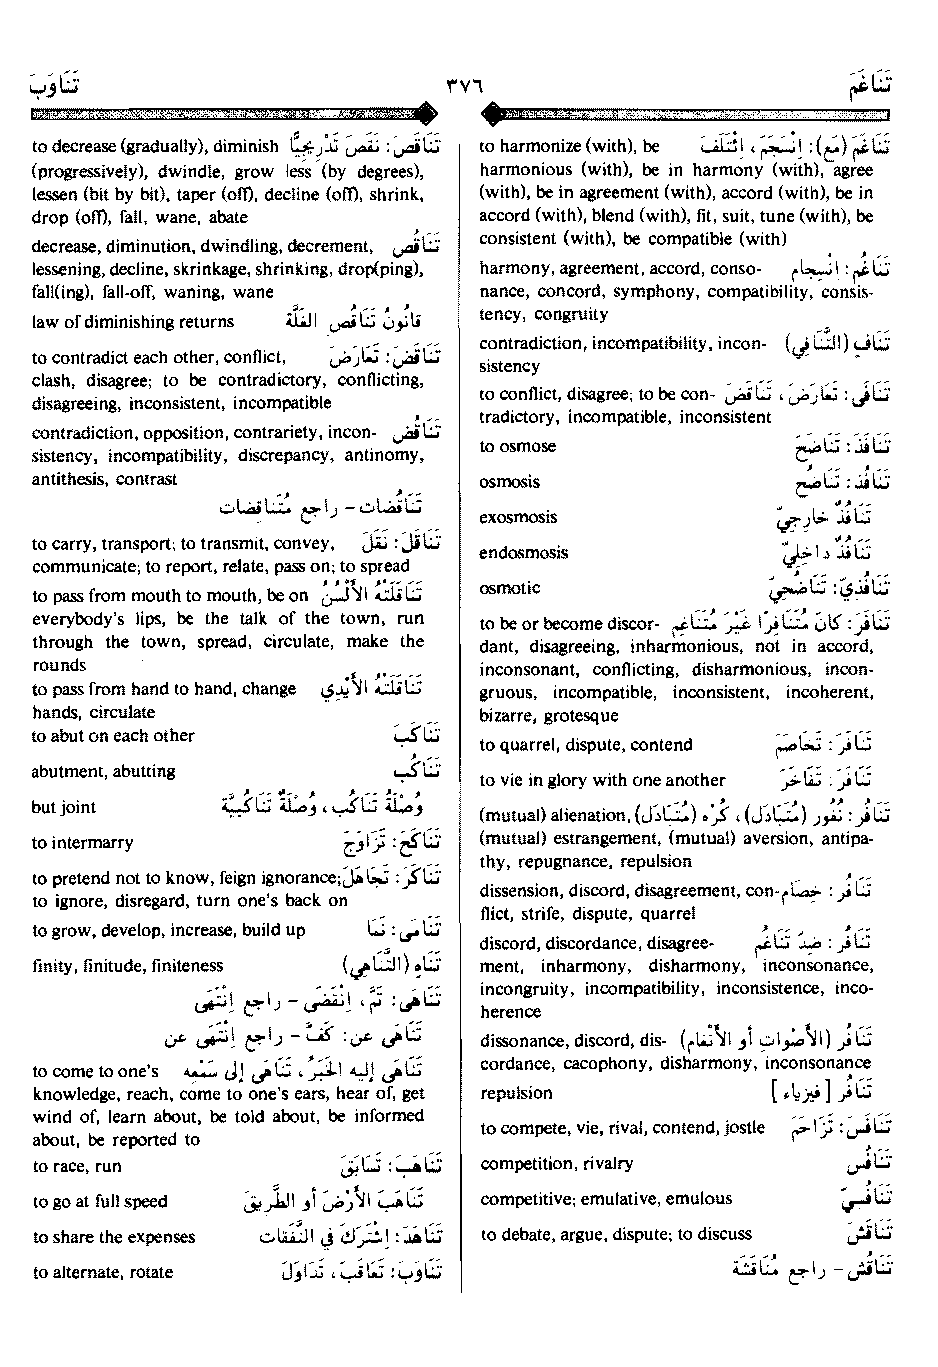 تَنَاغَمَ
٣٧٦
تَنَاوَبَ
تَنَاغَمَ (مَعَ): اِنْسَجَمَ، اِئْتَلَفَ to harmonize (with), be
harmonious (with), be in harmony (with), agree
(with), be in agreement (with), accord (with), be in
accord (with), blend (with), fit, suit, tune (with), be
consistent (with), be compatible (with)
تَنَاغُم: اِنْسِجَام harmony, agreement, accord, conso-
nance, concord, symphony, compatibility, consis-
tency, congruity
تَنَافٍ (التَّنَافِي) contradiction, incompatibility, incon-
sistency
تَنَافَى: تَعَارَضَ، تَنَاقَضَ to conflict, disagree; to be con-
tradictory, incompatible, inconsistent
تَنَافَذَ: تَنَاضَحَ to osmose
تَنَافُذ: تَنَاضُح osmosis
تَنَافُذٌ خَارِجِيّ exosmosis
تَنَافُذٌ دَاخِلِيّ endosmosis
تَنَافُذِيّ: تَنَاضُحِيّ osmotic
تَنَافَرَ: كَانَ مُتَنَافِرًا غَيْرَ مُتَنَاغِم to be or become discor-
dant, disagreeing, inharmonious, not in accord,
inconsonant, conflicting, disharmonious, incon-
gruous, incompatible, inconsistent, incoherent,
bizarre, grotesque
تَنَافَرَ: تَخَاصَمَ to quarrel, dispute, contend
تَنَافَرَ: تَفَاخَرَ to vie in glory with one another
تَنَافُر: نُفُور (مُتَبَادَل)، كُرْه (مُتَبَادَل) (mutual) alienation,
(mutual) estrangement, (mutual) aversion, antipa-
thy, repugnance, repulsion
تَنَافُر: خِصَام dissension, discord, disagreement, con-
flict, strife, dispute, quarrel
تَنَافُر: ضِدّ تَنَاغُم discord, discordance, disagree-
ment, inharmony, disharmony, inconsonance,
incongruity, incompatibility, inconsistence, inco-
herence
تَنَافُر (الأَصْوَاتِ أو الأَنْغَام) dissonance, discord, dis-
cordance, cacophony, disharmony, inconsonance
تَنَافُر [فيزياء] repulsion
تَنَافَسَ: تَزَاحَمَ to compete, vie, rival, contend, jostle
تَنَافُس competition, rivalry
تَنَافُسِيّ competitive; emulative, emulous
تَنَاقَشَ to debate, argue, dispute; to discuss
تَنَاقُش - راجع مُنَاقَشَة
تَنَاقَصَ: نَقَصَ تَدْرِيجِيًّا to decrease (gradually), diminish
(progressively), dwindle, grow less (by degrees),
lessen (bit by bit), taper (off), decline (off), shrink,
drop (off), fall, wane, abate
تَنَاقُص decrease, diminution, dwindling, decrement,
lessening, decline, skrinkage, shrinking, drop(ping),
fall(ing), fall-off, waning, wane
قَانُونُ تَنَاقُصِ الغَلَّة law of diminishing returns
تَنَاقَضَ: تَعَارَضَ to contradict each other, conflict,
clash, disagree; to be contradictory, conflicting,
disagreeing, inconsistent, incompatible
تَنَاقُض contradiction, opposition, contrariety, incon-
sistency, incompatibility, discrepancy, antinomy,
antithesis, contrast
تَنَاقُضَات - راجع مُتَنَاقِضَات
تَنَاقَلَ: نَقَلَ to carry, transport; to transmit, convey,
communicate; to report, relate, pass on; to spread
تَنَاقَلَتْهُ الأَلْسُن to pass from mouth to mouth, be on
everybody's lips, be the talk of the town, run
through the town, spread, circulate, make the
rounds
تَنَاقَلَتْهُ الأَيْدِي to pass from hand to hand, change
hands, circulate
تَنَاكَبَ to abut on each other
تَنَاكُب abutment, abutting
وُصْلَةُ تَنَاكُب، وُصْلَةٌ تَنَاكُبِيَّة but joint
تَنَاكَحَ: تَزَاوَجَ to intermarry
تَنَاكَرَ: تَجَاهَلَ to pretend not to know, feign ignorance;
to ignore, disregard, turn one's back on
تَنَامَى: نَمَا to grow, develop, increase, build up
تَنَاهٍ (التَّنَاهِي) finity, finitude, finiteness
تَنَاهَى: تَمَّ، اِنْقَضَى - راجع اِنْتَهَى
تَنَاهَى عن: كَفَّ - راجع اِنْتَهَى عن
تَنَاهَى إليه الخَبَرُ، تَنَاهَى إلى سَمْعِه to come to one's
knowledge, reach, come to one's ears, hear of, get
wind of, learn about, be told about, be informed
about, be reported to
تَنَاهَبَ: تَسَابَقَ to race, run
تَنَاهَبَ الأَرْضَ أو الطَّرِيقَ to go at full speed
تَنَاهَدَ: اِشْتَرَكَ في النَّفَقَات to share the expenses
تَنَاوَبَ: تَعَاقَبَ، تَدَاوَلَ to alternate, rotate